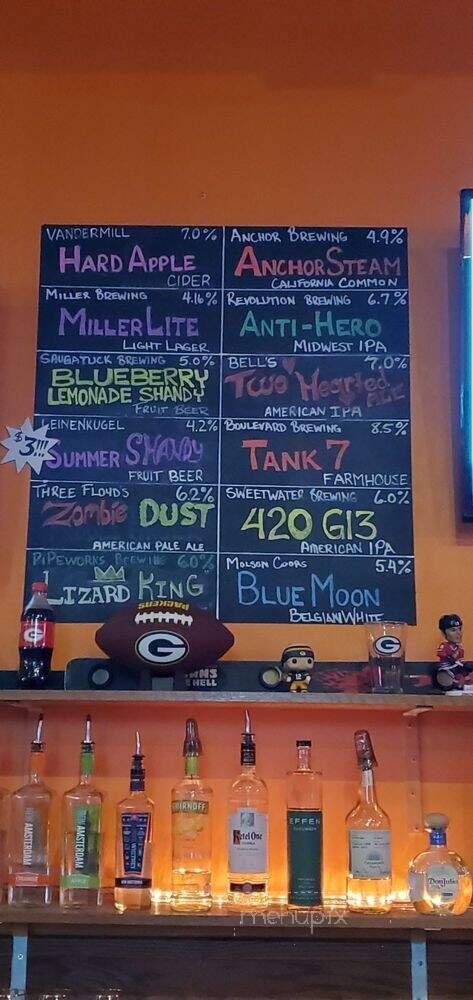 VANDERMILL 7.0%
HARD APPLE
CIDER
MILLER BREWING 4.16%
MILLER LITE
LIGHT LAGER
SAUGATUCK BREWING 5.0%
BLUEBERRY
LEMONADE SHANDY
FRUIT BEER
$3!!!
LEINENKUGEL 4.2%
SUMMER SHANDY
FRUIT BEER
THREE FLOYD'S 6.2%
Zombie DUST
AMERICAN PALE ALE
PIPEWORKS BREWING 6.0%
LIZARD KING
ANCHOR BREWING 4.9%
ANCHOR STEAM
CALIFORNIA COMMON
REVOLUTION BREWING 6.7%
ANTI-HERO
MIDWEST IPA
BELL'S 7.0%
Two Hearted
ALE
AMERICAN IPA
BOULEVARD BREWING 8.5%
TANK 7
FARMHOUSE
SWEETWATER BREWING 6.0%
420 G13
AMERICAN IPA
MOLSON COORS 5.4%
BLUE MOON
BELGIAN WHITE
PACKERS
G
G
G
12
NEW AMSTERDAM
NEW AMSTERDAM
APPLE
SMIRNOFF
Ketel One
VODKA
EFFEN
CUCUMBER
Don Julio
menupix